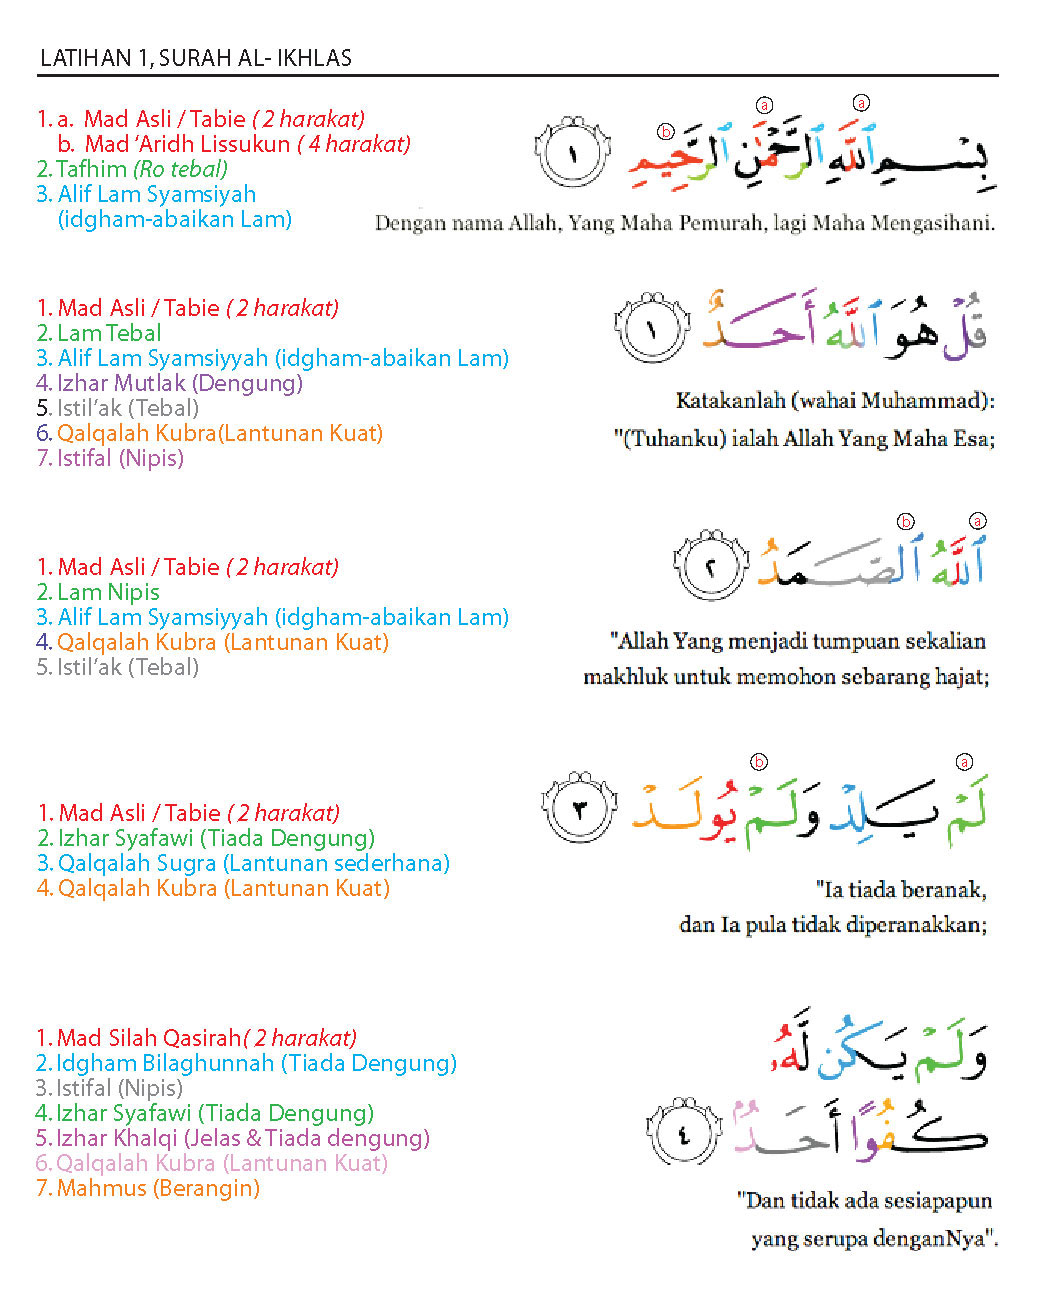 LATIHAN 1, SURAH AL- IKHLAS
1. a. Mad Asli / Tabie ( 2 harakat)
b. Mad ‘Aridh Lissukun ( 4 harakat)
2. Tafhim (Ro tebal)
3. Alif Lam Syamsiyah
(idgham-abaikan Lam)
a
a
b
بِسْمِ ٱللَّهِ ٱلرَّحْمَٰنِ ٱلرَّحِيمِ ١
Dengan nama Allah, Yang Maha Pemurah, lagi Maha Mengasihani.
1. Mad Asli / Tabie ( 2 harakat)
2. Lam Tebal
3. Alif Lam Syamsiyyah (idgham-abaikan Lam)
4. Izhar Mutlak (Dengung)
5. Istil’ak (Tebal)
6. Qalqalah Kubra(Lantunan Kuat)
7. Istifal (Nipis)
قُلْ هُوَ ٱللَّهُ أَحَدٌ ١
Katakanlah (wahai Muhammad):
"(Tuhanku) ialah Allah Yang Maha Esa;
1. Mad Asli / Tabie ( 2 harakat)
2. Lam Nipis
3. Alif Lam Syamsiyyah (idgham-abaikan Lam)
4. Qalqalah Kubra (Lantunan Kuat)
5. Istil’ak (Tebal)
a
b
ٱللَّهُ ٱلصَّمَدُ ٢
"Allah Yang menjadi tumpuan sekalian
makhluk untuk memohon sebarang hajat;
1. Mad Asli / Tabie ( 2 harakat)
2. Izhar Syafawi (Tiada Dengung)
3. Qalqalah Sugra (Lantunan sederhana)
4. Qalqalah Kubra (Lantunan Kuat)
a
b
لَمْ يَلِدْ وَلَمْ يُولَدْ ٣
"Ia tiada beranak,
dan Ia pula tidak diperanakkan;
1. Mad Silah Qasirah( 2 harakat)
2. Idgham Bilaghunnah (Tiada Dengung)
3. Istifal (Nipis)
4. Izhar Syafawi (Tiada Dengung)
5. Izhar Khalqi (Jelas & Tiada dengung)
6. Qalqalah Kubra (Lantunan Kuat)
7. Mahmus (Berangin)
وَلَمْ يَكُن لَّهُۥ
كُفُوًا أَحَدٌۢ ٤
"Dan tidak ada sesiapapun
yang serupa denganNya".